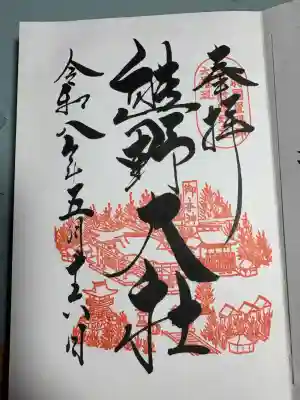 奉拝
熊野大社
令和八年五月十六日